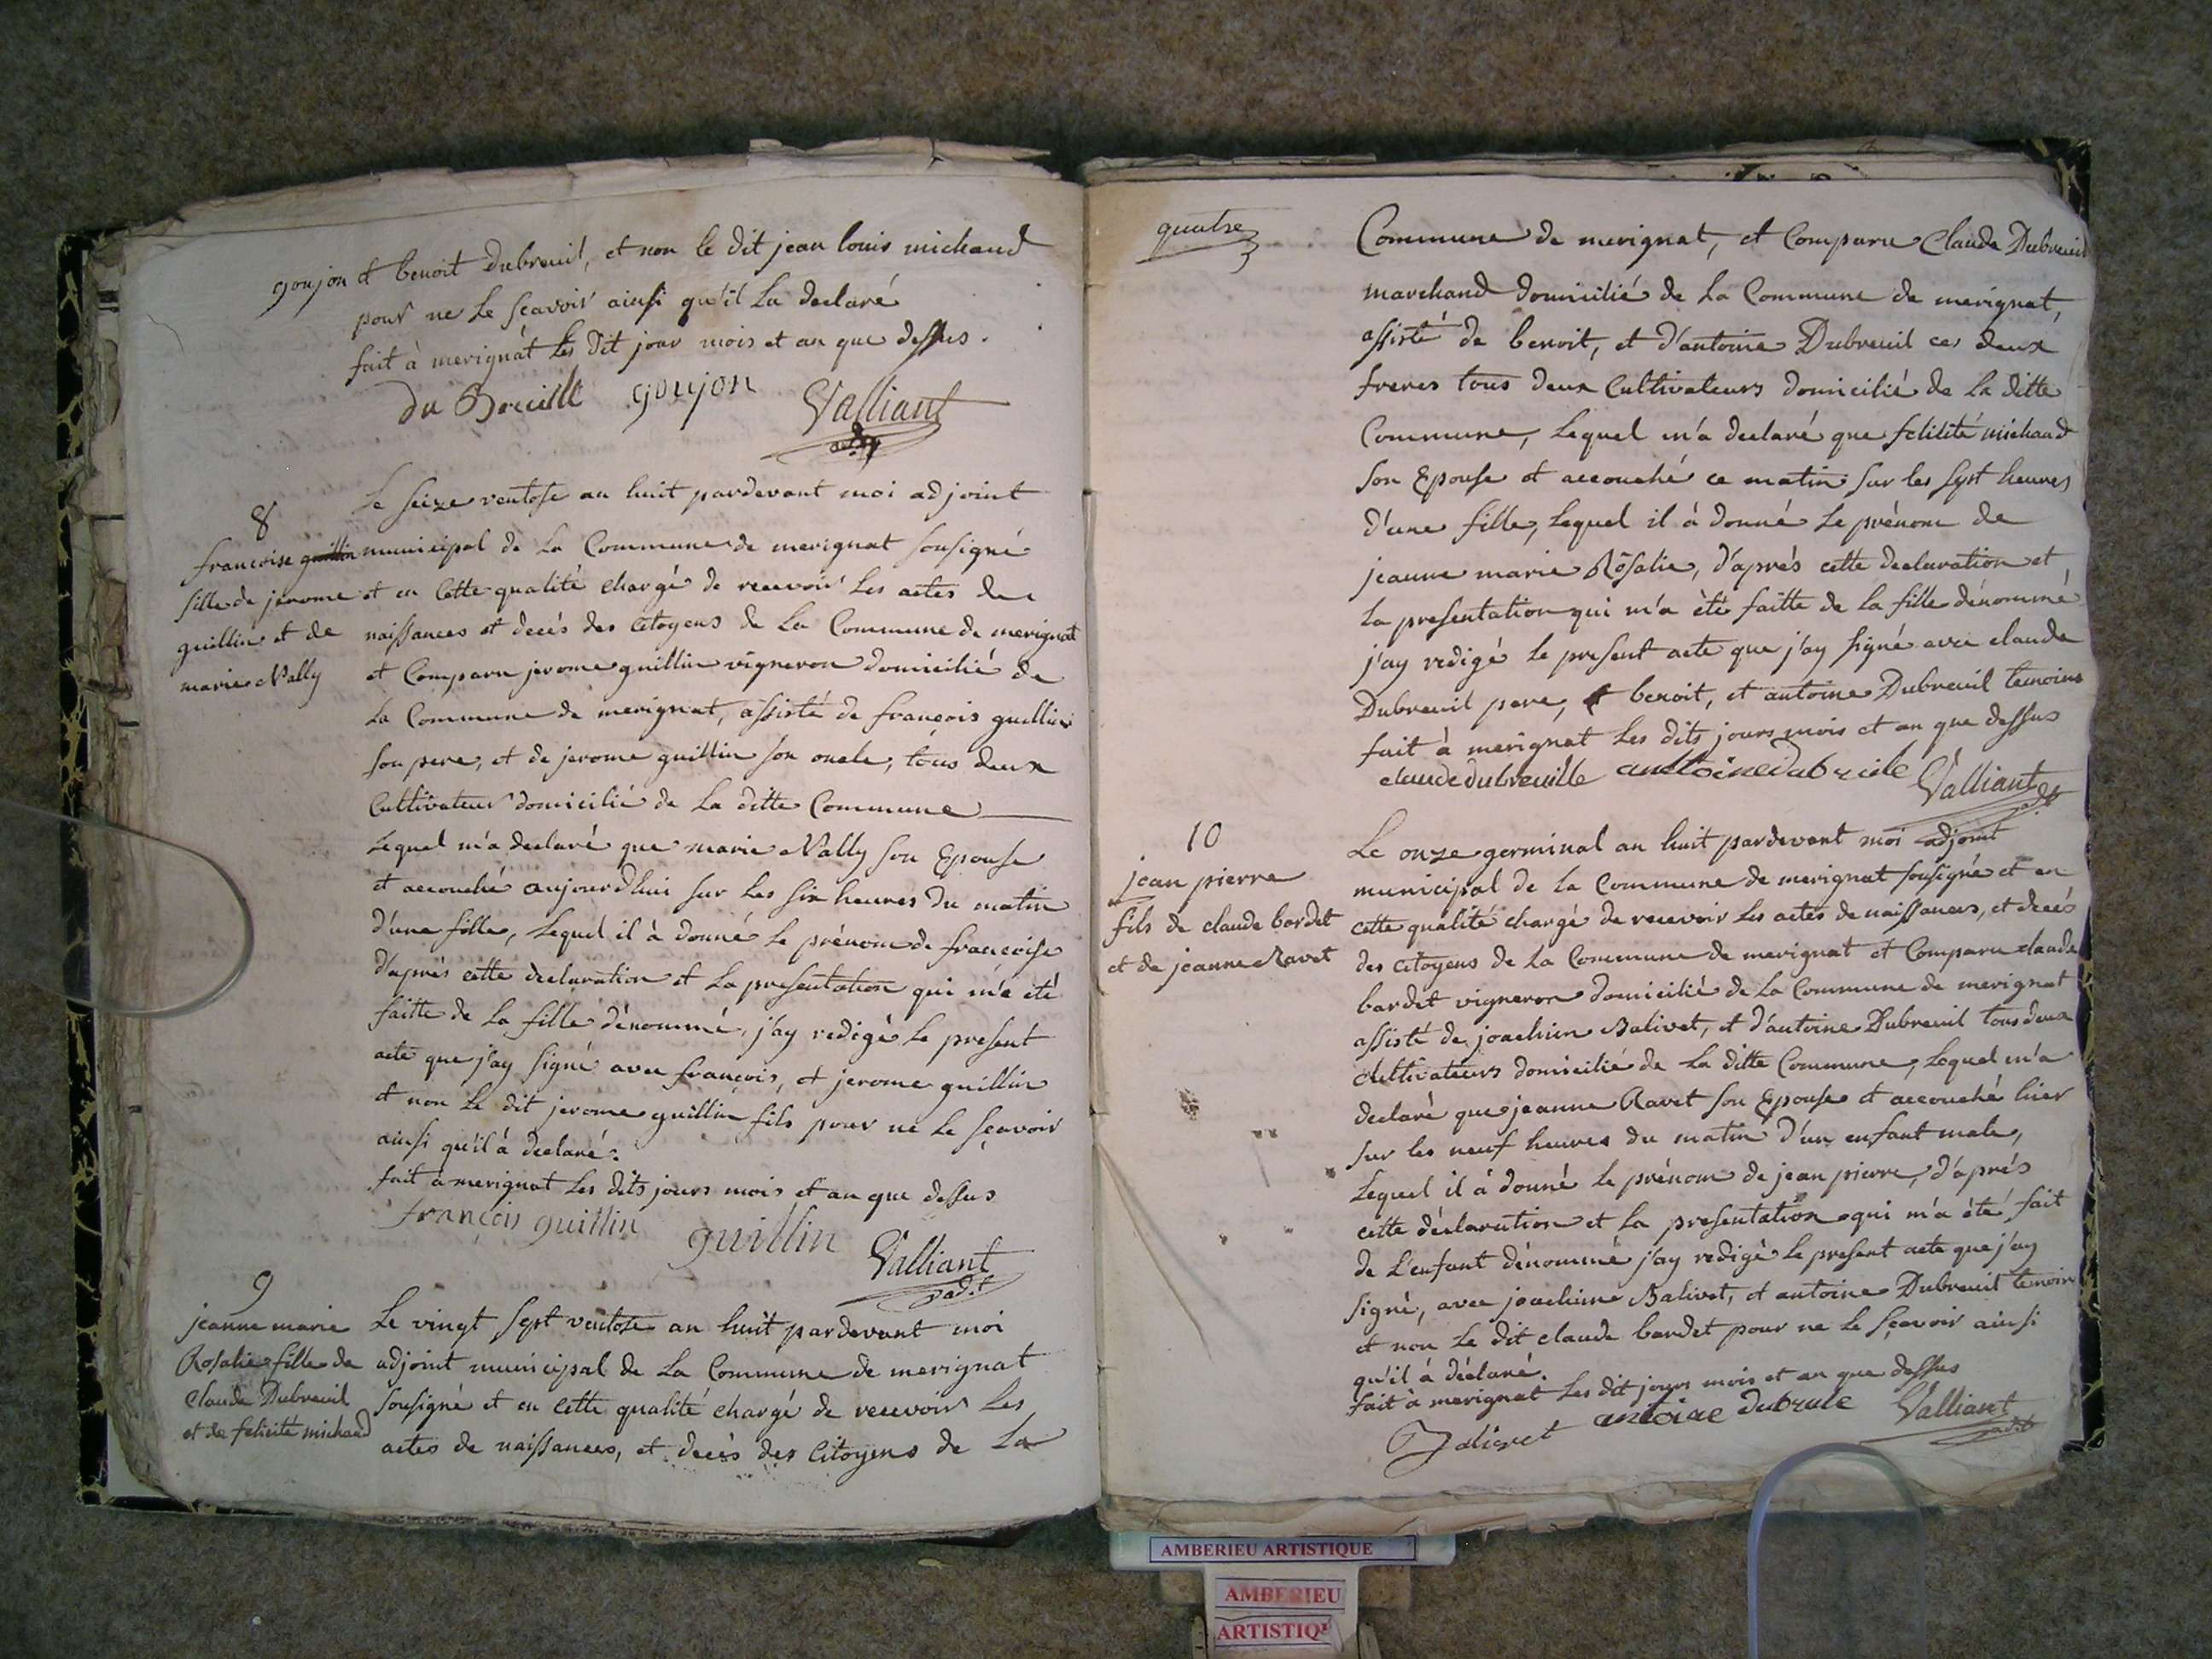 goujon et benoit dubreuil, et non le dit jean louis michaud
pour ne le sçavoir ainsi qu'il la declaré
fait à merignat les dit jour mois et an que dessus.
du Breuille goujon Valliant
adjt
8
francoise guillin
fille de jerome
guillin et de
marie Nally
Le seize ventose an huit pardevant moi adjoint
municipal de la Commune de merignat sousigné
et en cette qualité chargé de recevoir les actes de
naissances et decés des citoyens de la Commune de merignat
et Comparu jerome guillin vigneron domicilié de
la Commune de merignat, assisté de françois guillin
son pere, et de jerome guillin son oncle, tous deux
Cultivateur domicilié de la ditte Commune
Lequel m'a declaré que marie Nally son Epouse
et accouché aujourdhui sur les six heures du matin
d'une fille, Lequel il à donné le prénom de francoise
d'aprés cette declaration et la presentation qui m'a été
faitte de la fille dénommé, j'ay redigé le present
acte que j'ay signé avec françois, et jerome guillin
et non le dit jerome guillin fils pour ne le sçavoir
ainsi qu'il à declaré.
fait à merignat les dits jours mois et an que dessus
françois guillin guillin Valliant
adjt
9
jeanne marie
Rosalie fille de
Claude Dubreuil
et de felicité michaud
Le vingt sept ventose an huit pardevant moi
adjoint municipal de la Commune de merignat
sousigné et en cette qualité chargé de recevoir les
actes de naissances, et decès des citoyens de la
quatre
Commune de merignat, et Comparu Claude Dubreuil
marchand domicilié de la Commune de merignat,
assisté de benoit, et d'antoine Dubreuil ces deux
freres tous deux Cultivateurs domicilié de la ditte
Commune, Lequel m'a declaré que felicité michaud
son Epouse et accouché ce matin sur les sept heures
d'une fille, Lequel il à donné le prénom de
jeanne marie Rosalie, d'aprés cette declaration et
la presentation qui m'a été faitte de la fille dénommé
j'ay redigé le present acte que j'ay signé avec claude
Dubreuil pere, benoit, et antoine Dubreuil temoins
fait à merignat les dits jours mois et an que dessus
claude dubreuille antoine dubreule Valliant
adjt
10
jean pierre
fils de claude bardet
et de jeanne Ravet
Le onze germinal an huit pardevant moi adjoint
municipal de la Commune de merignat sousigné et en
cette qualité chargé de recevoir les actes de naissances, et decés
des citoyens de la Commune de merignat et Comparu claude
bardet vigneron domicilié de la Commune de merignat
assisté de joachim Balivet, et d'antoine Dubreuil tous deux
Cultivateurs domicilié de la ditte Commune, Lequel m'a
declaré que jeanne Ravet son Epouse et accouché hier
sur les neuf heures du matin d'un enfant male,
Lequel il à donné le prénom de jean pierre, d'aprés
cette déclaration et la presentation qui m'à été fait
de l'enfant dénommé j'ay redigé le present acte que j'ay
signé, avec joachime Balivet, et antoine Dubreuil temoin
et non le dit claude bardet pour ne le sçavoir ainsi
qu'il à déclaré.
fait à merignat les dit jours mois et an que dessus
Balivet antoine dubrule Valliant
adjt
AMBERIEU ARTISTIQUE
AMBERIEU
ARTISTIQU